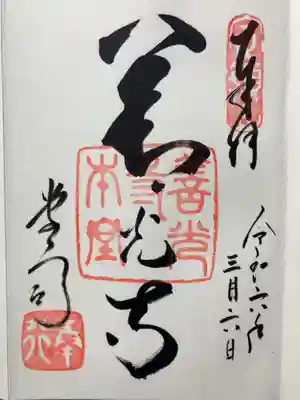 奉拝
令和六年
三月六日
善光寺
善光寺
本堂
堂司